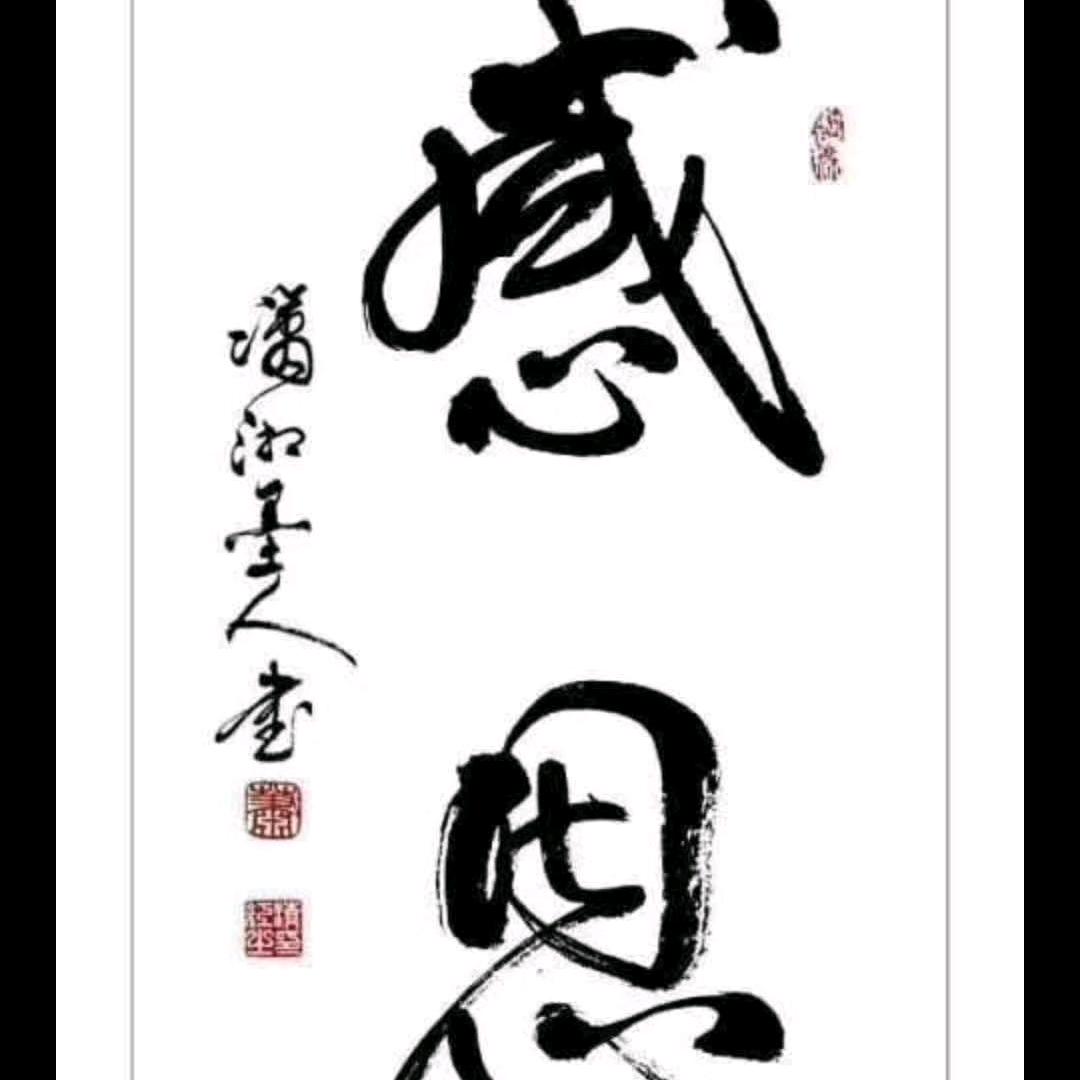 感恩
瀟湘墨人書